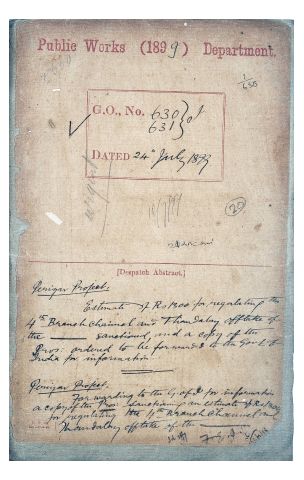 Public Works (1899) Department.
1/630
G.O., No. 630 } of
631
DATED 24th July 1899
urgent
20
[Despatch Abstract.]
Project.
Estimate of Rs for regulating the
4th Branch channel and offtake of
the sanctioned, and a copy of the
Pros: ordered to be forwarded to the Govt of
India for information
Project.
Forwarding to the G. of I. for information
a copy of the Pros: sanctioning an estimate of
for regulating the 4th Branch Channel and
offtake of the